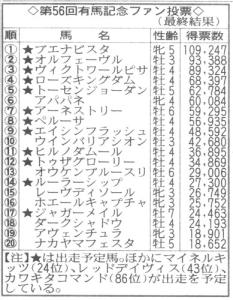 ◇第56回有馬記念ファン投票◇
(最終結果)
順 馬名 性齢 得票数
① ★ブエナビスタ 牝5 109,247
② ★オルフェーヴル 牡3 93,388
③ ★ヴィクトワールピサ 牡4 89,324
④ ★ローズキングダム 牡4 68,397
⑤ ★トーセンジョーダン 牡5 62,784
⑥ アパパネ 牝4 60,084
⑦ ★アーネストリー 牡6 59,295
⑧ ★ペルーサ 牡4 56,935
⑨ ★エイシンフラッシュ 牡4 48,592
⑩ ウインバリアシオン 牡3 42,680
⑪ ★ヒルノダムール 牡4 36,895
⑫ ★トゥザグローリー 牡4 34,869
⑬ オウケンブルースリ 牡6 29,006
⑭ ★ルーラーシップ 牡4 27,300
⑮ レーヴディソール 牝3 26,749
⑯ ホエールキャプチャ 牝3 26,752
⑰ ★ジャガーメイル 牡7 24,463
⑱ ダークシャドウ 牡4 24,193
⑲ アヴェンチュラ 牝3 19,271
⑳ ナカヤマフェスタ 牡5 18,652
【注】★は出走予定馬。ほかにマイネルキ
ッツ(24位)、レッドデイヴィス(43位)、
カワキタコマンド(86位)が出走を予定
している。